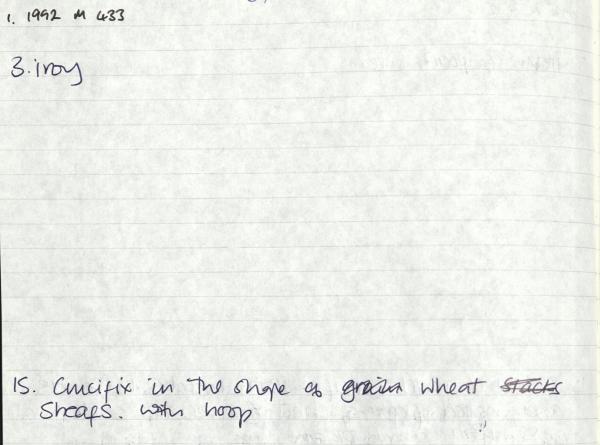 1. 1992 M 433
3. iroy
15. Crucifix in the shape of grain wheat stacks
sheafs. with hoop